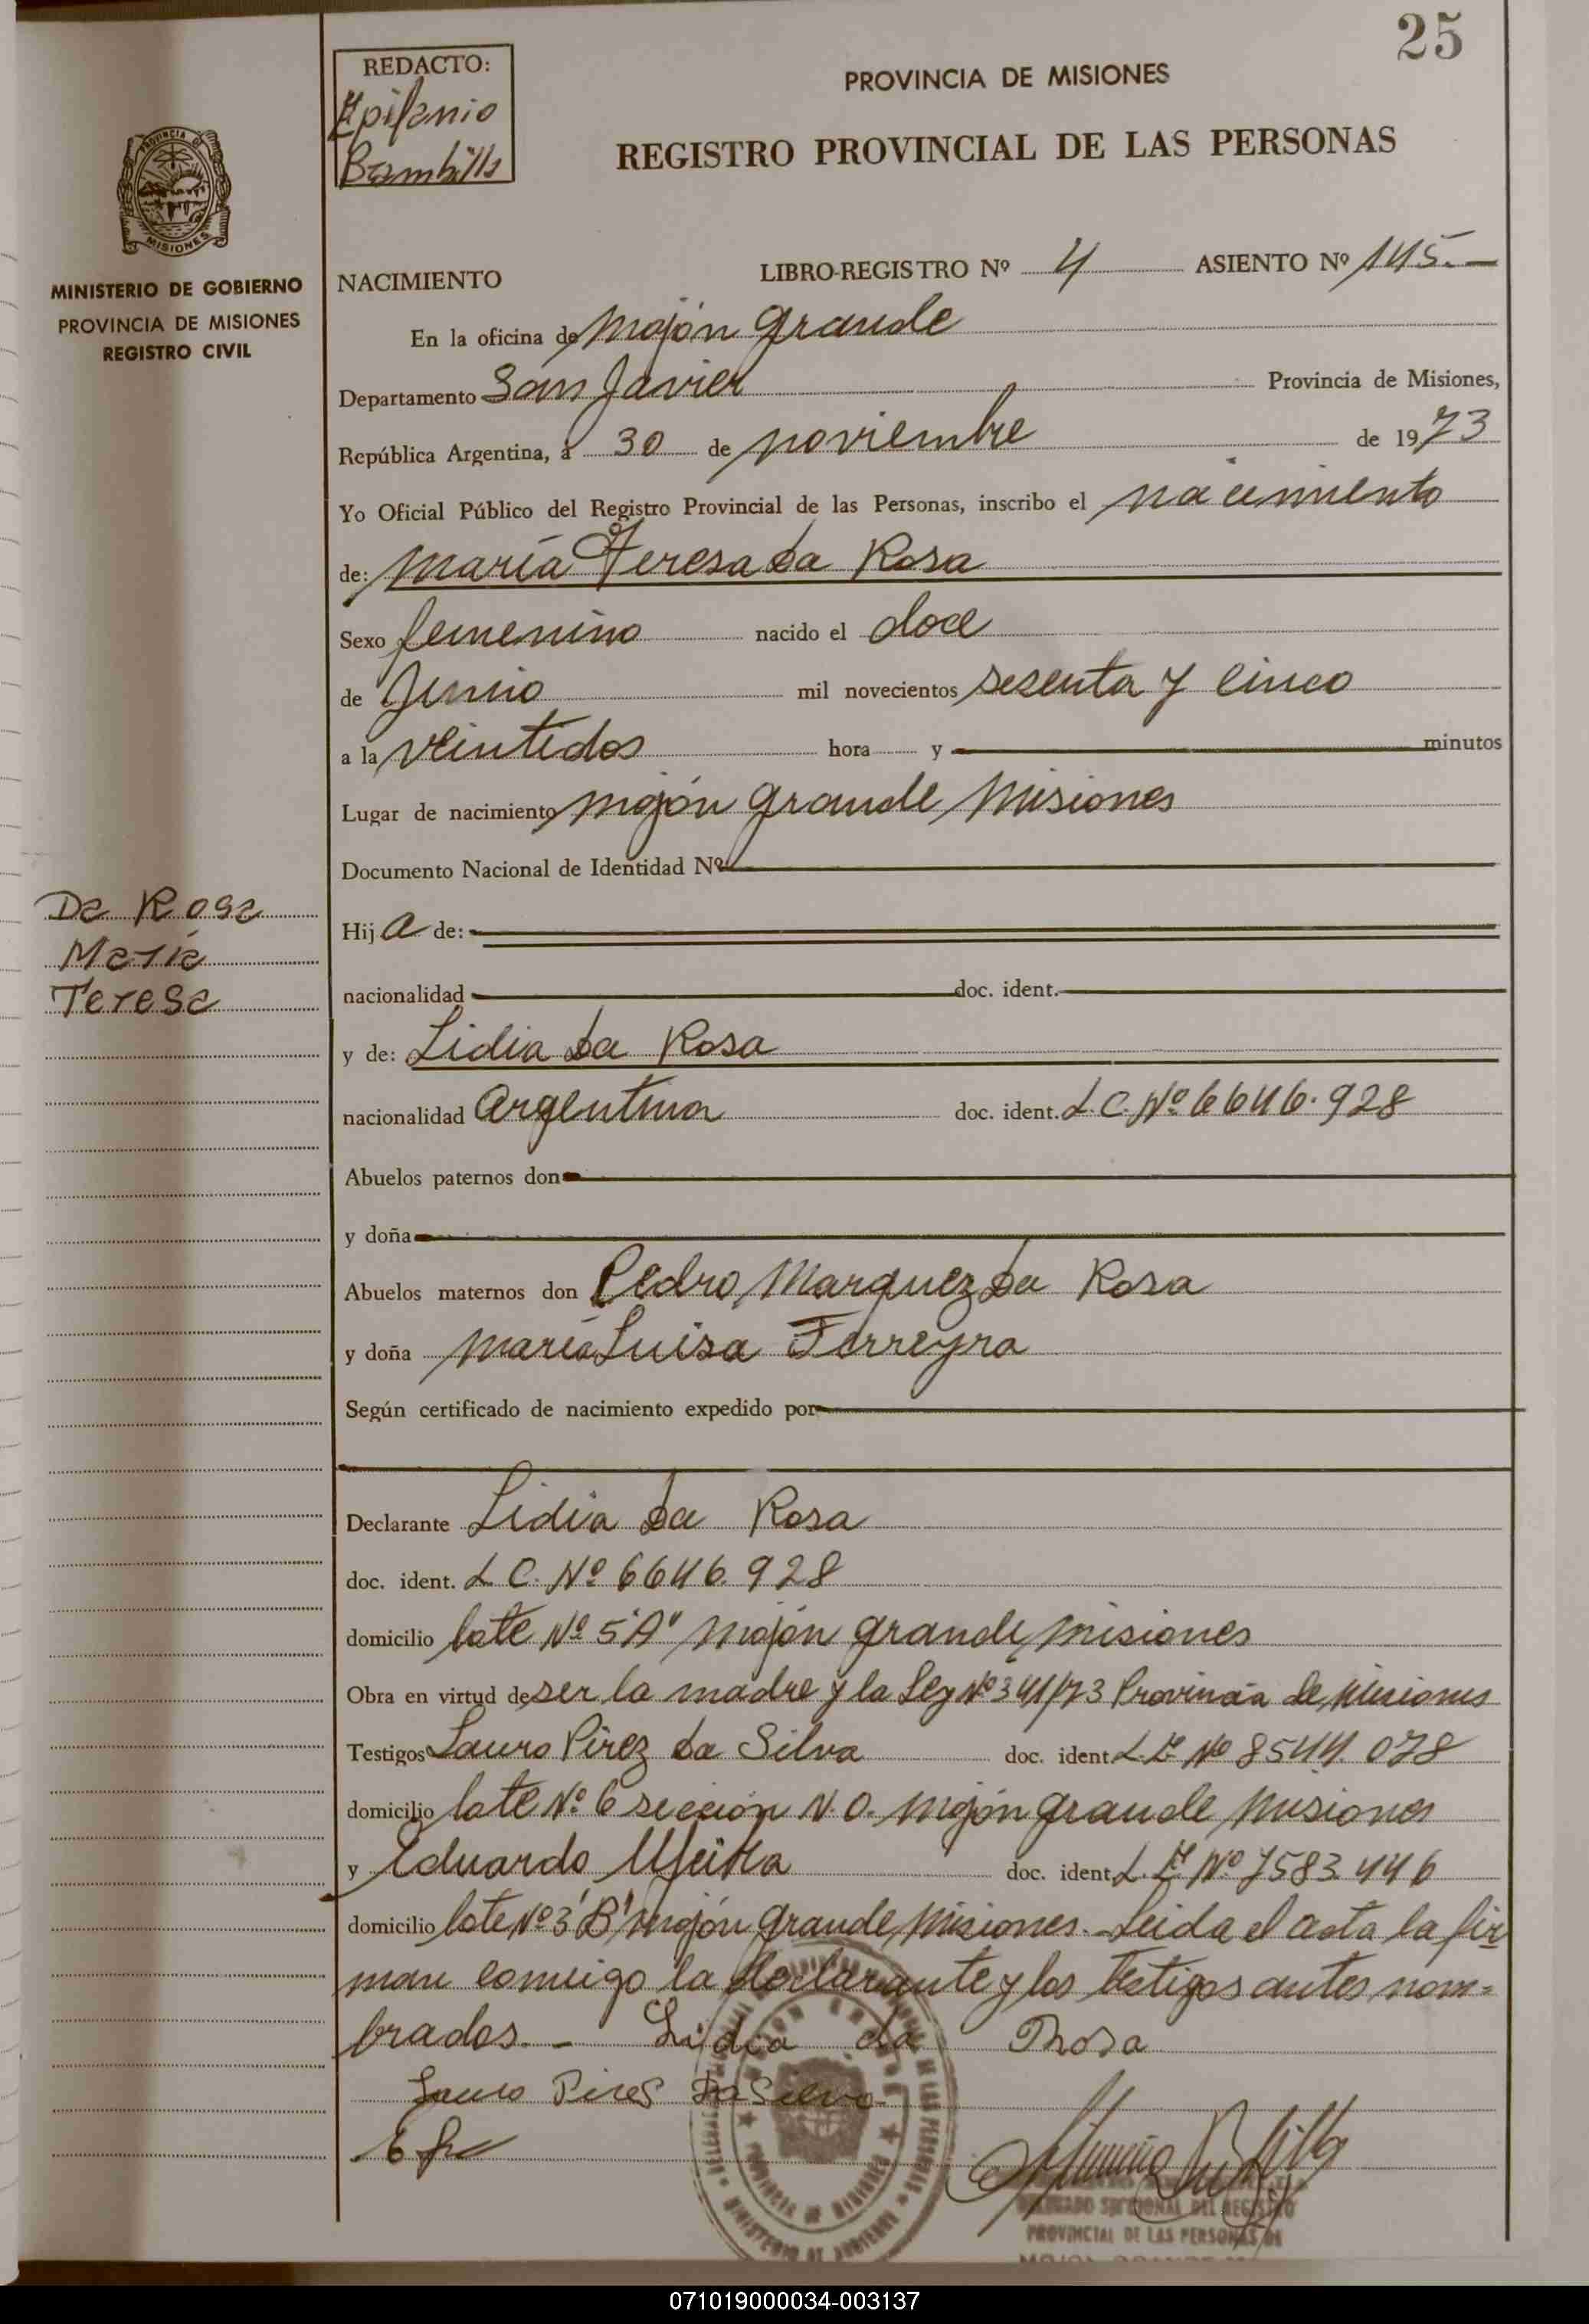 25
REDACTO:
Epifanio
Bambills
PROVINCIA DE MISIONES
REGISTRO PROVINCIAL DE LAS PERSONAS
PROVINCIA
MISIONES
MINISTERIO DE GOBIERNO
PROVINCIA DE MISIONES
REGISTRO CIVIL
NACIMIENTO LIBRO-REGISTRO Nº 4 ASIENTO Nº 145.-
En la oficina de Mojón Grande
Departamento San Javier Provincia de Misiones,
República Argentina, a 30 de noviembre de 1973
Yo Oficial Público del Registro Provincial de las Personas, inscribo el nacimiento
de: María Teresa Da Rosa
Sexo femenino nacido el doce
de Junio mil novecientos sesenta y cinco
a la veintidos hora y minutos
Lugar de nacimiento Mojón Grande, Misiones
Documento Nacional de Identidad Nº
Da Rosa
María
Teresa
Hij a de:
nacionalidad doc. ident.
y de: Lidia Da Rosa
nacionalidad Argentina doc. ident. L.C. Nº 6646.928
Abuelos paternos don
y doña
Abuelos maternos don Pedro Marquez Da Rosa
y doña María Luisa Ferreyra
Según certificado de nacimiento expedido por
Declarante Lidia Da Rosa
doc. ident. L C. Nº 6646.928
domicilio lote Nº 5 "A" Mojón Grande, Misiones
Obra en virtud de ser la madre y la Ley Nº 341/73 Provincia de Misiones
Testigos Lauro Pirez Da Silva doc. ident. L.E. Nº 8544.078
domicilio lote Nº 6 sección N.O. Mojón Grande, Misiones
y Eduardo doc. ident. L.E. Nº 7583.446
domicilio lote Nº 3 "B" Mojón Grande, Misiones. Leida el acta la fir
man conmigo la declarante y los testigos antes nom=
brados.- Lidia da Rosa
Lauro Pires Da Silva
DELEGADO SECCIONAL DEL REGISTRO
PROVINCIAL DE LAS PERSONAS DE
071019000034-003137